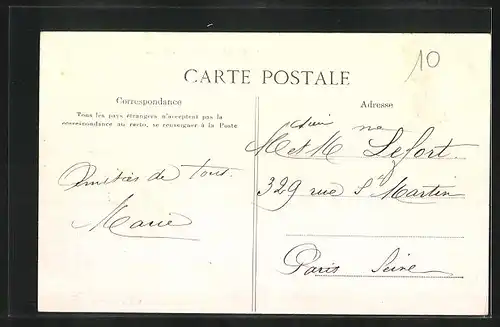 10
CARTE POSTALE
Correspondance
Tous les pays étrangers n'acceptent pas la
correspondance au recto, se renseigner à la Poste
Adresse
Amitiés de tous.
Marie
M et Mme Lefort
329 rue St Martin
Paris Seine